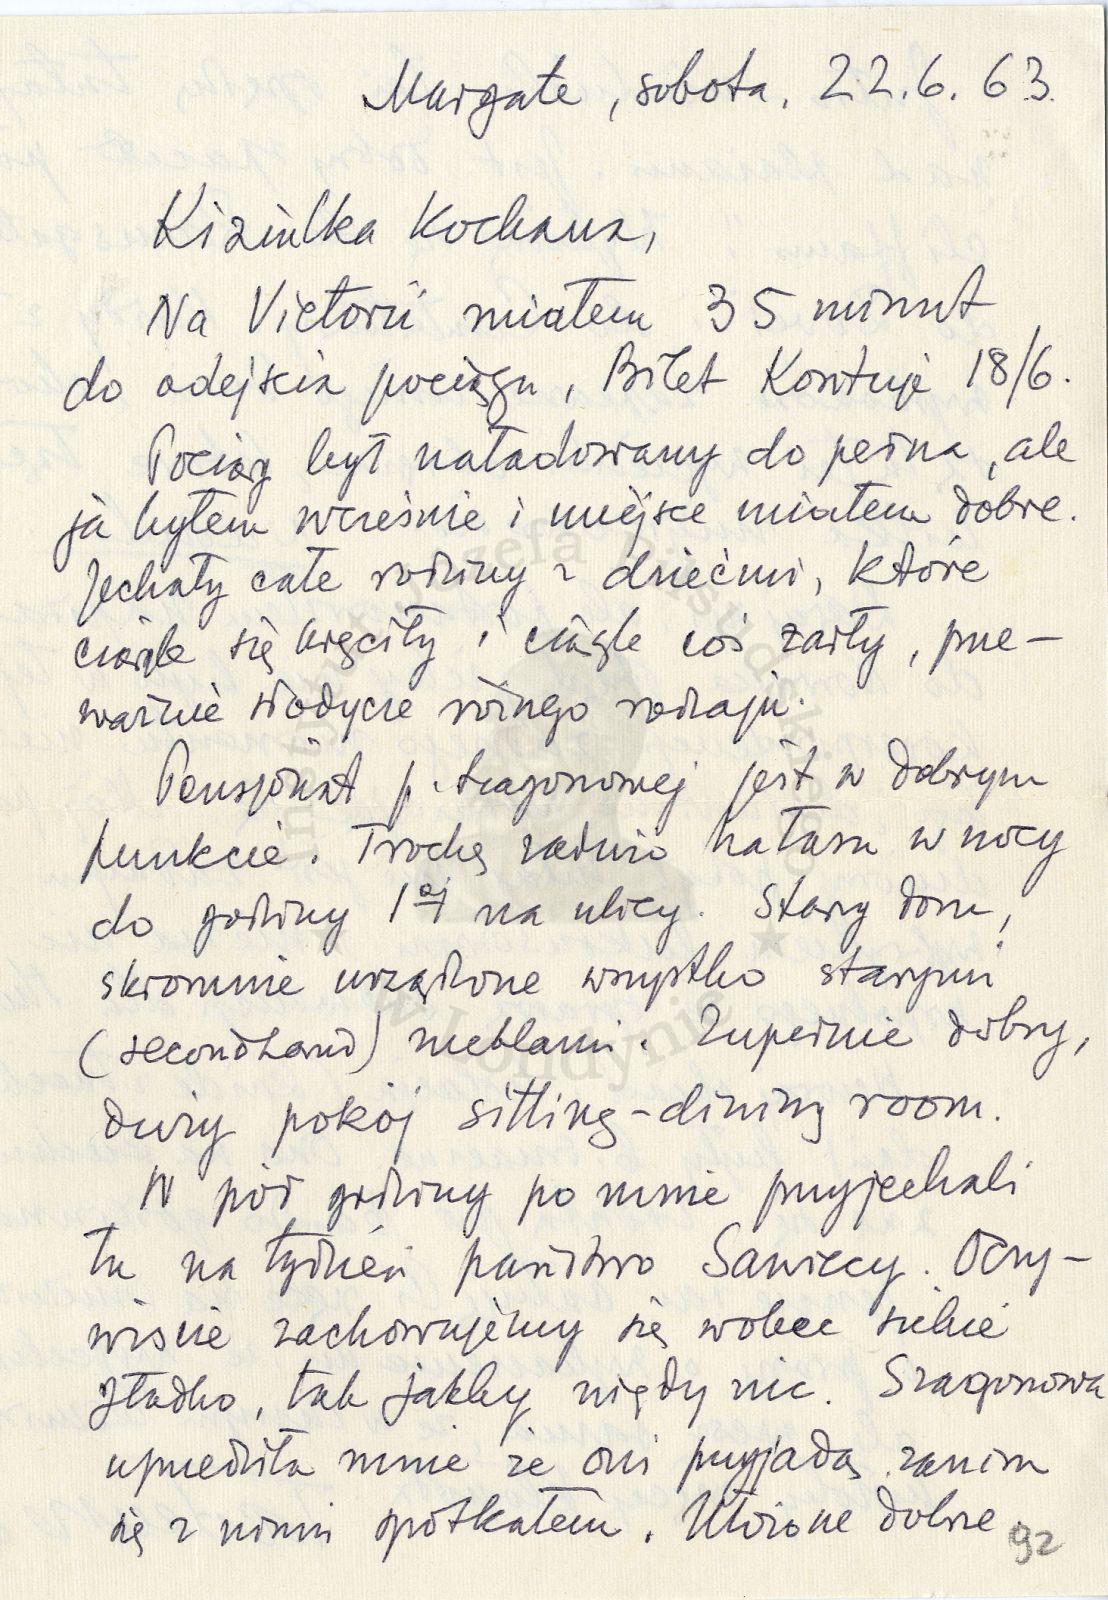 Margate, sobota, 22.6.63.
Kiziulka Kochana,
Na Victorii miałem 35 minut
do odejścia pociągu, Bilet Kosztuje 18/6.
Pociąg był naładowany do pełna, ale
ja byłem wcześnie i miejsce miałem dobre.
Jechały całe rodziny z dziećmi, które
ciągle się kręciły i ciągle coś żarły, prze–
ważnie słodycze różnego rodzaju.
Pensjonat p. Szagonowej jest w dobrym
punkcie. Trochę zadużo hałasu w nocy
do godziny 1ej na ulicy. Stary dom,
skromnie urządzone wszystko starymi
(secondhand) meblami. Zupełnie dobry,
duży pokój sitting–dining room.
W pół godziny po mnie przyjechali
tu na tydzień państwo Sawiccy. Oczy–
wiście zachowujemy się wobec siebie
gładko, tak jakby nigdy nic. Szagonowa
uprzedziła mnie że oni przyjadą zanim
się z nimi spotkałem. Ułożone dobrze.
92
Instytut Józefa Piłsudskiego
w Londynie